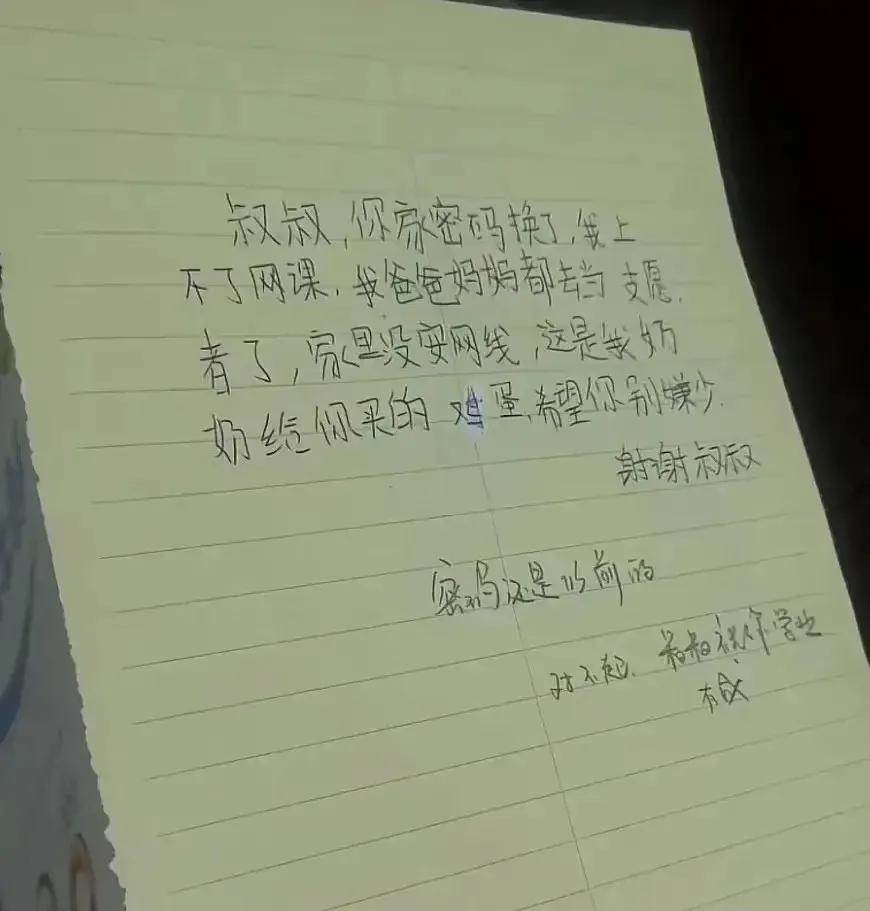 叔叔,你家密码换了,我上
不了网课,我爸爸妈妈都去当支愿
者了,家里没安网线,这是我奶
奶给你买的鸡蛋,希望你别嫌少.
谢谢叔叔
密码还是以前的
对不起.叔叔祝你学业
有成